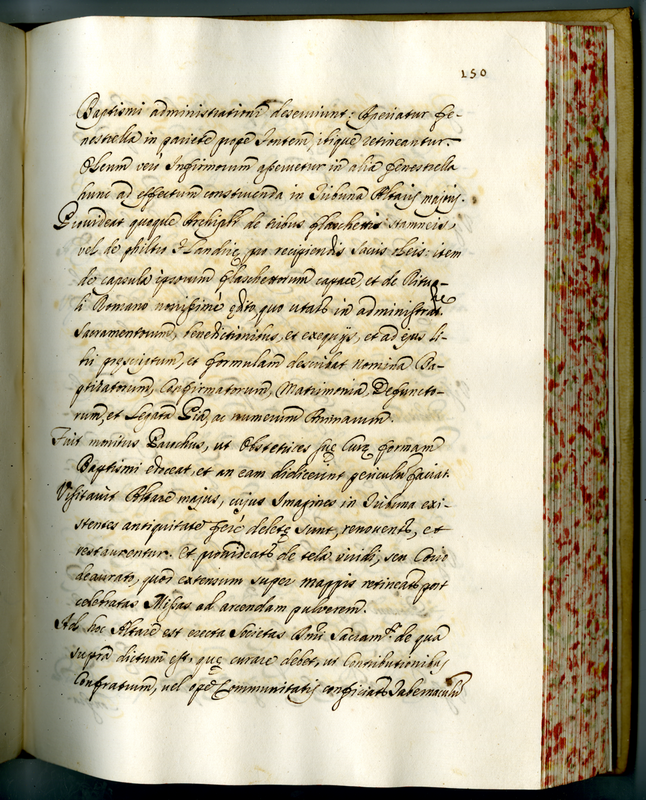 150
Baptismi administrationi deserviunt: Aperiatur fe-
nestrella in pariete prope Fontem, ibique retineantur.
Oleum verò Infirmorum asservetur in alia fenestrella
hunc ad effectum construenda in Tribuna Altaris majoris.
Provideat quoque Archipbr de tribus flaschettis stamneis,
vel de philtro Flandriæ, pro recipiendis Sacris Oleis: item
de capsula ipsorum flaschettorum capace, et de Ritua-
li Romano novissimè edito, quo utatr in administrae
Sacramentorum, benedictionibus, et exequijs, et ad ejus li-
bri præscriptum, et formulam describat nomina Ba-
ptizatorum, Confirmatorum, Matrimonia, Defuncto-
rum, et Legata Pia, ac numerum Animarum.
Fuit monitus Parochus, ut Obstetrices suæ Curæ formam
Baptismi edoceat, et an eam didicerint periculum faciat.
Visitavit Altare majus, cujus Imagines in Tribuna exi-
stentes antiquitate ferè deletæ sunt, renoventr, et
restaurentur. Et provideatr de tela viridi, seu Corio
deaurato, quod extensum super mappis retineatr post
celebratas Missas ad arcendam pulverem.
Ad hoc Altare est erecta Societas Smi Sacramti de qua
supra dictum est, quæ curare debet, ut Contributionibus
Confratrum, vel ope Communitatis conficiatr Tabernaculum